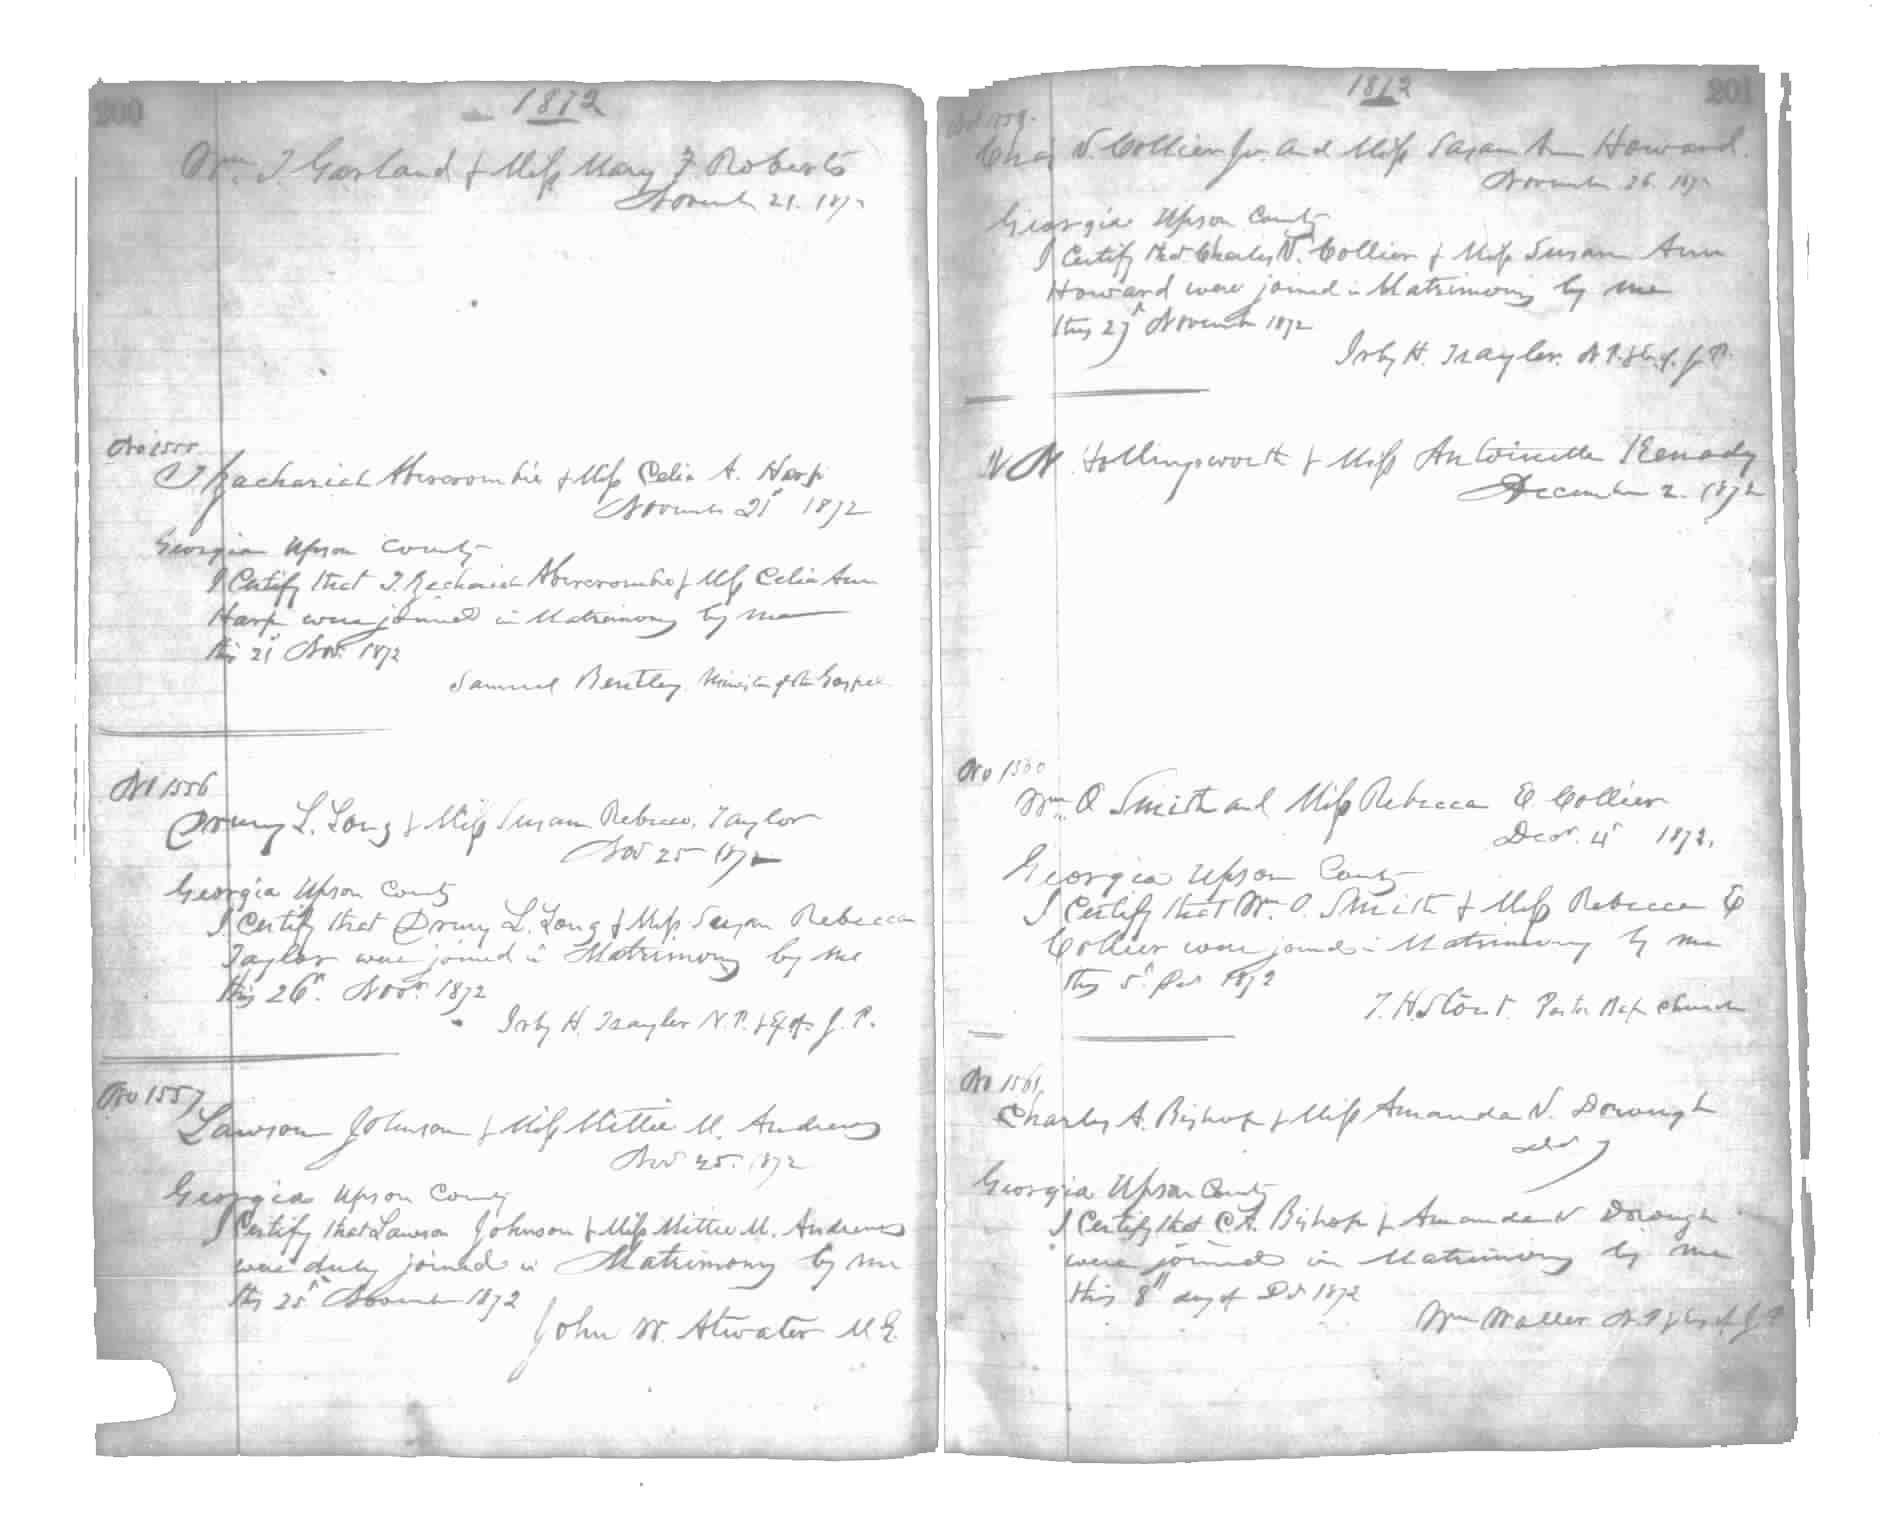 200
1872
Wm. T. Garland & Miss Mary F Roberts
November 21. 1872
No 1555
T Zachariah Abercrombie & Miss Celia A. Harp
November 21st 1872
Georgia Upson County
I Certify that T. Zachariah Abercrombie & Miss Celia Ann
Harp were joined in Matrimony by me
this 21st Nov. 1872
Samuel Bentley Minister of the Gospel
No 1556
Drury L. Long & Miss Susan Rebecca Taylor
Nov 25 1872
Georgia Upson County
I Certify that Drury L. Long & Miss Susan Rebecca
Taylor were joined in Matrimony by me
this 26th. Novr. 1872
Irby H. Traylor N.P. & Exof. J.P.
No 1557
Lawson Johnson & Miss Mittie M. Andrews
Nov 25. 1872
Georgia Upson County
I Certify that Lawson Johnson & Miss Mittie M. Andrews
were duly joined in Matrimony by me
this 25th November 1872
John W. Atwater M.G.
201
1872
No 1559.
Chas N. Collier Jr. and Miss Susan Ann Howard.
November 26. 1872
Georgia Upson County
I Certify that Charles N. Collier & Miss Susan Ann
Howard were joined in Matrimony by me
this 27th November 1872
Irby H. Traylor. N.P. & Ex.of. J.P.
N N Hollingsworth & Miss Antoinette Kenady
December 2. 1872
No 1560
Wm. O Smith and Miss Rebecca E Collier
Decr. 4th 1872.
Georgia Upson County
I Certify that Wm. O. Smith & Miss Rebecca E
Collier were joined in Matrimony by me
this 5th Dec 1872
T. H. Stout. Pastor Bap Church
No 1561.
Charles A. Bishop & Miss Amanda N. Dorough
Dec 7
Georgia Upson County
I Certify that C A. Bishop & Amanda N Dorough
were joined in Matrimony by me
this 8th day of Dec 1872
Wm Waller N.P. & Ex of. J.P.